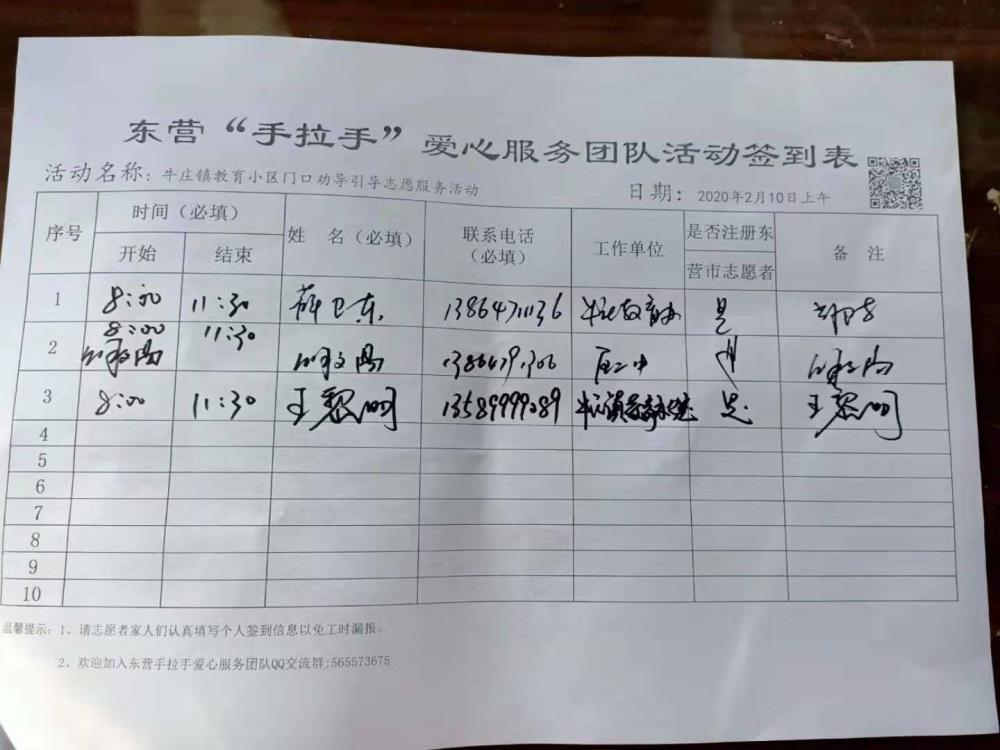 东营“手拉手”爱心服务团队活动签到表
活动名称：牛庄镇教育小区门口劝导引导志愿服务活动 日期： 2020年2月10日上午
序号 时间（必填） 姓 名（必填） 联系电话（必填） 工作单位 是否注册东营市志愿者 备 注
开始 结束
1 8:00 11:30 薛卫东 13864711136 是
2 8:00 11:30
3 8:00 11:30 王黎明 13589999089 是 王黎明
4
5
6
7
8
9
10
温馨提示：1、请志愿者家人们认真填写个人签到信息以免工时漏报。
2、欢迎加入东营手拉手爱心服务团队QQ交流群:565573675